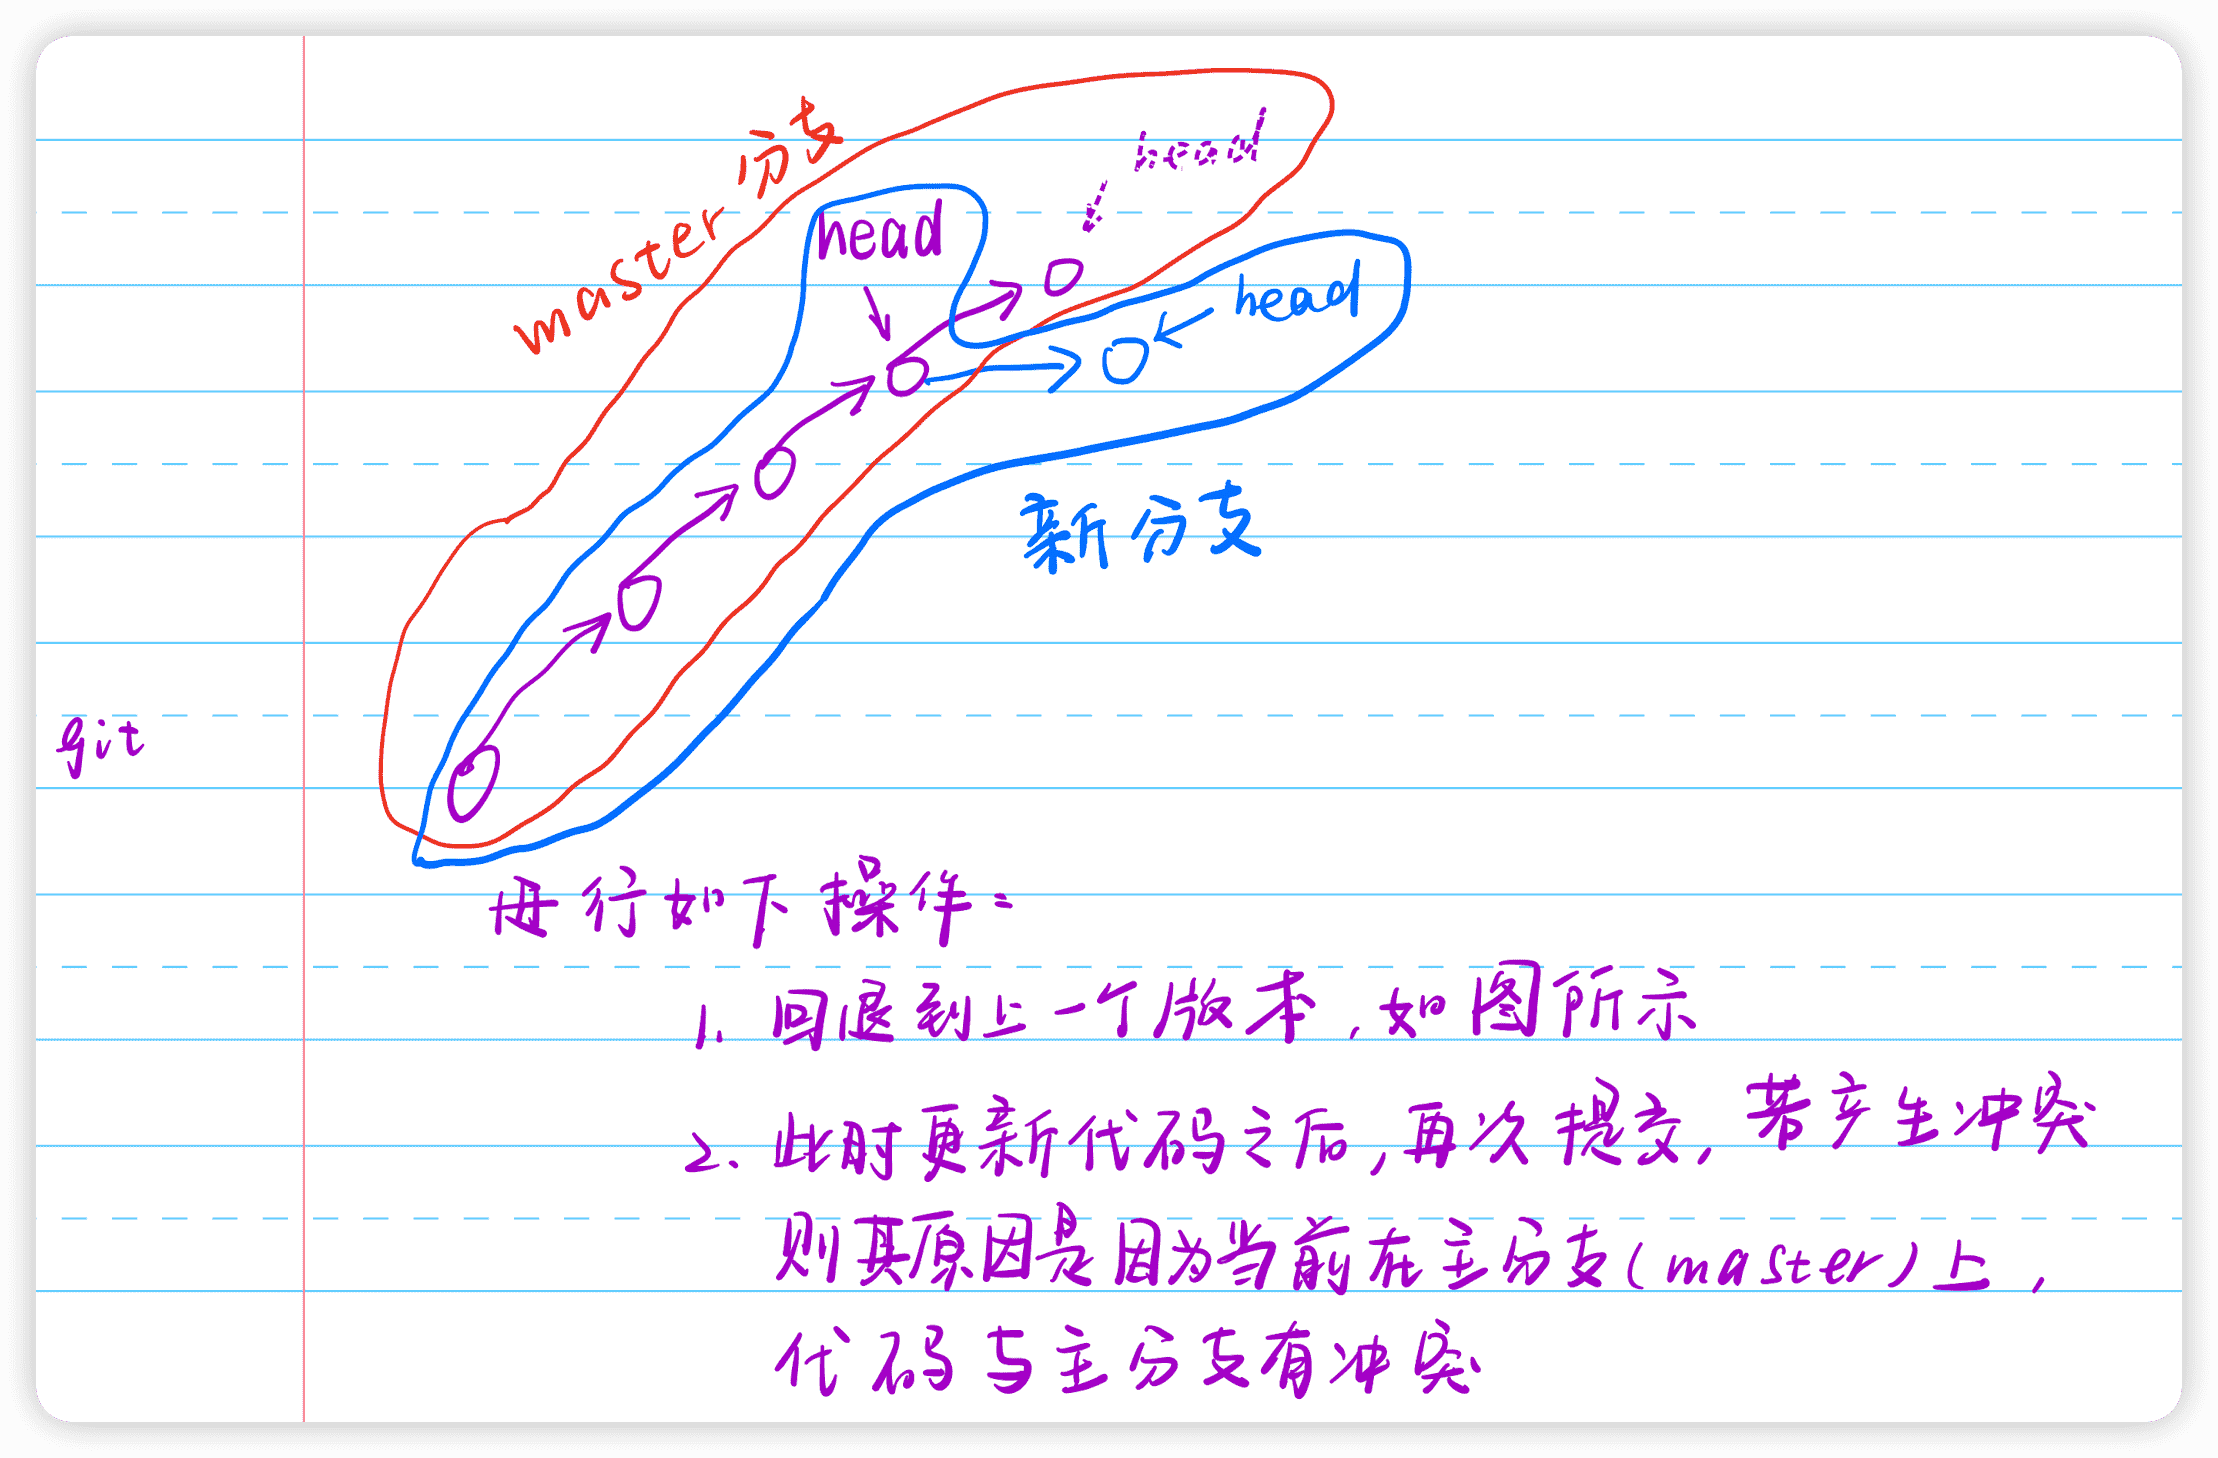 master 分支
head
head
head
新分支
git
再行如下操作:
1. 回退到上一个版本,如图所示
2. 此时更新代码之后,再次提交,若产生冲突
则其原因是因为当前在主分支(master)上,
代码与主分支有冲突